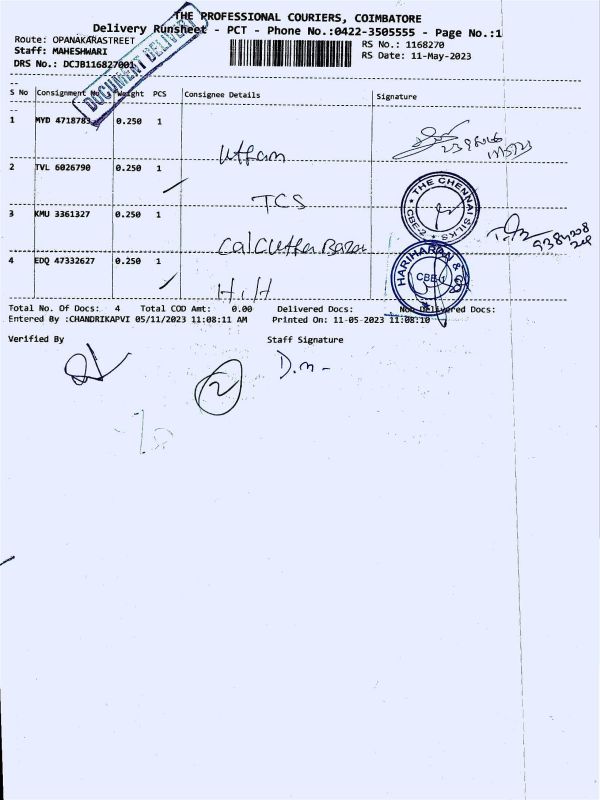 THE PROFESSIONAL COURIERS, COIMBATORE
Delivery Runsheet - PCT - Phone No.:0422-3505555 - Page No.:1
Route: OPANAKARASTREET
RS No.: 1168270
Staff: MAHESHWARI
RS Date: 11-May-2023
DRS No.: DCJB116827001
DOCUMENT DELIVERY
S No Consignment No Weight PCS Consignee Details Signature
1 MYD 4718783 0.250 1
Uttam
2 TVL 6026790 0.250 1
TCS
THE CHENNAI SILKS CBE-2
3 KMU 3361327 0.250 1
Calcutta Bazar
4 EDQ 47332627 0.250 1
H.H
HARIHARAN & CO CBE-1
Total No. Of Docs: 4 Total COD Amt: 0.00 Delivered Docs: Non-Delivered Docs:
Entered By :CHANDRIKAPVI 05/11/2023 11:08:11 AM Printed On: 11-05-2023 11:08:10
Verified By Staff Signature
D.m-
2